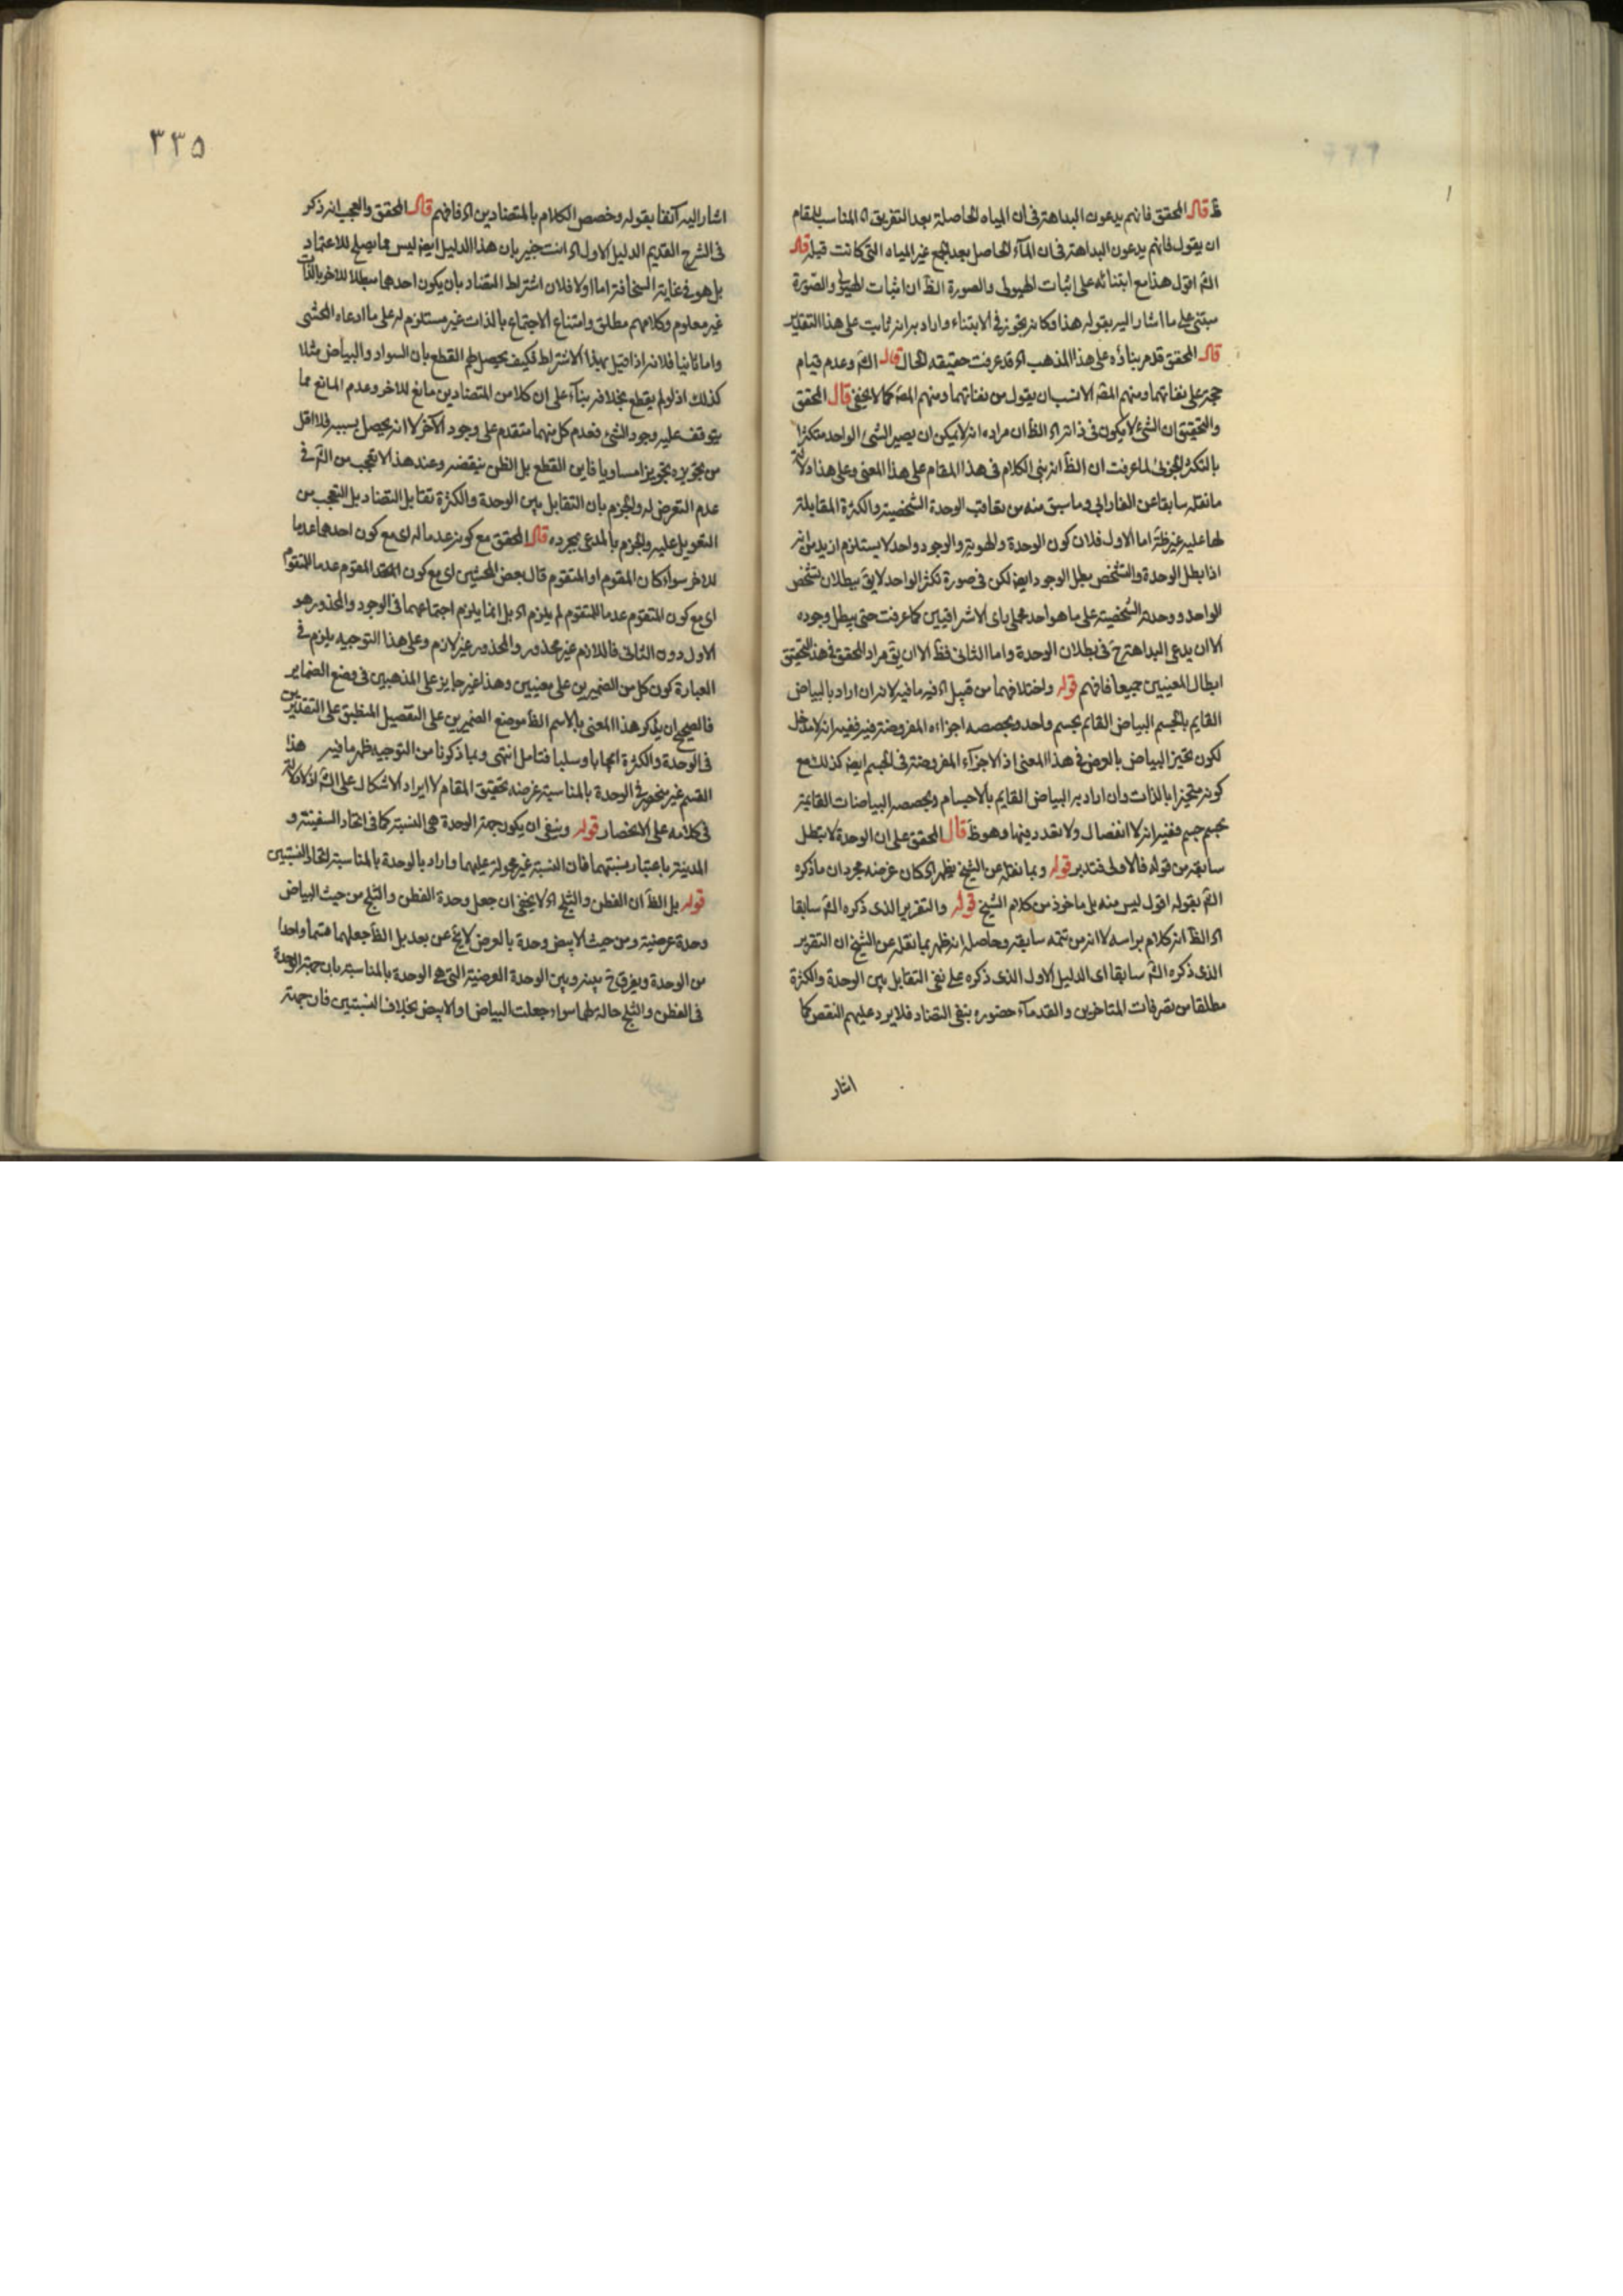 ظ قال المحقق فانهم يدعون البداهة فى ان المياه الحاصلة بعد التفريق اه المناسب للمقام
ان يقول فانهم يدعون البداهة فى ان المآء الحاصل بعد الجمع غير المياه التى كانت قبله قال
الش اقول هذا مع ابتنائه على اثبات الهيولى والصورة الظ ان اثبات الهيولى والصورة
مبتنى على ما اشار اليه بقوله هذا وكانه تجوز فى الابتناء واراد به انه ثابت على هذا التقدير
قال المحقق قدم بناؤه على هذا المذهب اه قد عرفت حقيقه الحال قال الش وعدم قيام
حجة على نفاتهما ومنهم المصّ الانسب ان يقول من نفاتهما ومنهم المصّ كما لا يخفى قال المحقق
والتحقيق ان الشئ لا يكون فى ذاته اه الظ ان مراده انه لا يمكن ان يصير الشئ الواحد متكثرا
بالتكثر الجزئى لما عرفت ان الظ انه بنى الكلام فى هذا المقام على هذا المعنى وعلى هذا دلالة
ما نقله سابقا عن الفارابى وما سبق منه من تعاقب الوحدة الشخصية والكثرة المقابلة
لها عليه غير ظة اما الاول فلان كون الوحدة والهوية والوجود واحد لا يستلزم ازيد من انه
اذا بطل الوحدة والتشخص بطل الوجود ايض لكن فى صورة تكثر الواحد لا يق ببطلان تشخص
الواحد ووحدته الشخصية على ما هو احد محملى راى الاشراقيين كما عرفت حتى يبطل وجوده
الا ان يدعى البداهة ح فى بطلان الوحدة واما الثانى فظ الا ان يق مراد المحقق فى هذا التحقيق
ابطال المعنيين جميعا فافهم قوله واختلافهما من قبيل اه فيه ما فيه لانه ان اراد بالبياض
القايم بالجسم البياض القايم بجسم واحد وبحصصه اجزاءه المفروضة فيه ففيه انه لا مدخل
لكون تحيز البياض بالعرض فى هذا المعنى اذ الاجزآء المفروضة فى الجسم ايض كذلك مع
كونه متحيزا بالذات وان اراد به البياض القايم بالاجسام وبحصصه البياضات القايمة
بجسم جسم ففيه انه لا انفصال ولا تعدد فيها وهو ظ قال المحقق على ان الوحدة لا تبطل
سابقه من قوله فالاولى فتدبر قوله وبما نقله عن الشيخ يظهر اه كان غرضه مجرد ان ما ذكره
الش بقوله اقول ليس منه بل ماخوذ من كلام الشيخ قوله والتقرير الذى ذكره الش سابقا
اه الظ انه كلام براسه لا انه من تتمه سابقه وحاصله انه ظهر بما نقله عن الشيخ ان التقرير
الذى ذكره الش سابقا اى الدليل الاول الذى ذكره على نفى التقابل بين الوحدة والكثرة
مطلقا من تصرفات المتاخرين والقدمآء حضوره بنفى التضاد فلا يرد عليهم النقص كما
اشار
٣٣٥
اشار اليه آنفا بقوله وخصص الكلام بالمتضادين اه فافهم قال المحقق والعجب انه ذكر
فى الشرح القديم الدليل الاول اه انت خبير بان هذا الدليل ايض ليس مما يصلح للاعتماد
بل هو فى غاية السخافة اما اولا فلان اشتراط التضاد بان يكون احدهما مبطلا للاخر بالذات
غير معلوم وكلامهم مطلق وامتناع الاجتماع بالذات غير مستلزم له على ما ادعاه المحشى
واما ثانيا فلانه اذا قيل بهذا الاشتراط فكيف يحصل لهم القطع بان السواد والبياض مثلا
كذلك اذ لو لم يقطع بخلافه بنآء على ان كلا من المتضادين مانع للاخر وعدم المانع مما
يتوقف عليه وجود الشئ فعدم كل منهما متقدم على وجود الآخر لا انه يحصل بسببه فلا اقل
من تجويزه تجويزا مساويا فاين القطع بل الظن بنقيضه وعند هذا لا تعجب من الش فى
عدم التعرض له والجزم بان التقابل بين الوحدة والكثرة تقابل التضاد بل التعجب من
التعويل عليه والجزم بالمدعى بمجرده قال المحقق مع كونه عدما له اى مع كون احدهما عدما
للاخر سواء كان المقوم او المتقوم قال بعض المحشين اى مع كون المقوم عدما للمتقوم
اى مع كون المتقوم عدما للمتقوم لم يلزم اه بل انما يلزم اجتماعهما فى الوجود والمحذور هو
الاول دون الثانى فاللازم غير محذور والمحذور غير لازم وعلى هذا التوجيه يلزم فى
العبارة كون كل من الضميرين على معنيين وهذا غير جايز على المذهبين فى وضع الضماير
فالصحيح ان يذكر هذا المعنى بالاسم الظ موضع الضميرين على التفصيل المنطبق على التقديرين
فى الوحدة والكثرة ايجابا وسلبا فتامل انتهى وبما ذكرنا من التوجيه ظهر ما فيه هذا
القسم غير منحصر فى الوحدة بالمناسبة غرضه تحقيق المقام لا ايراد الاشكال على الش اذ لا دلالة
فى كلامه على الانحصار قوله وينبغى ان يكون جهة الوحدة هى النسبة كما فى اتحاد السفينة و
المدينة باعتبار نسبتهما فان النسبة غير محمولة عليهما واراد بالوحدة بالمناسبة اتحاد النسبتين
قوله بل الظ ان القطن والثلج اه لا يخفى ان جعل وحدة القطن والثلج من حيث البياض
وحدة عرضية ومن حيث الابيض وحدة بالعرض لا يخ عن بعد بل الظ جعلهما قسما واحدا
من الوحدة ويفرق ح بينه وبين الوحدة العرضية التى هى الوحدة بالمناسبة بان جهة الوحدة
فى القطن والثلج حالة لهما سواء جعلت البياض او الابيض بخلاف النسبتين فان جهة